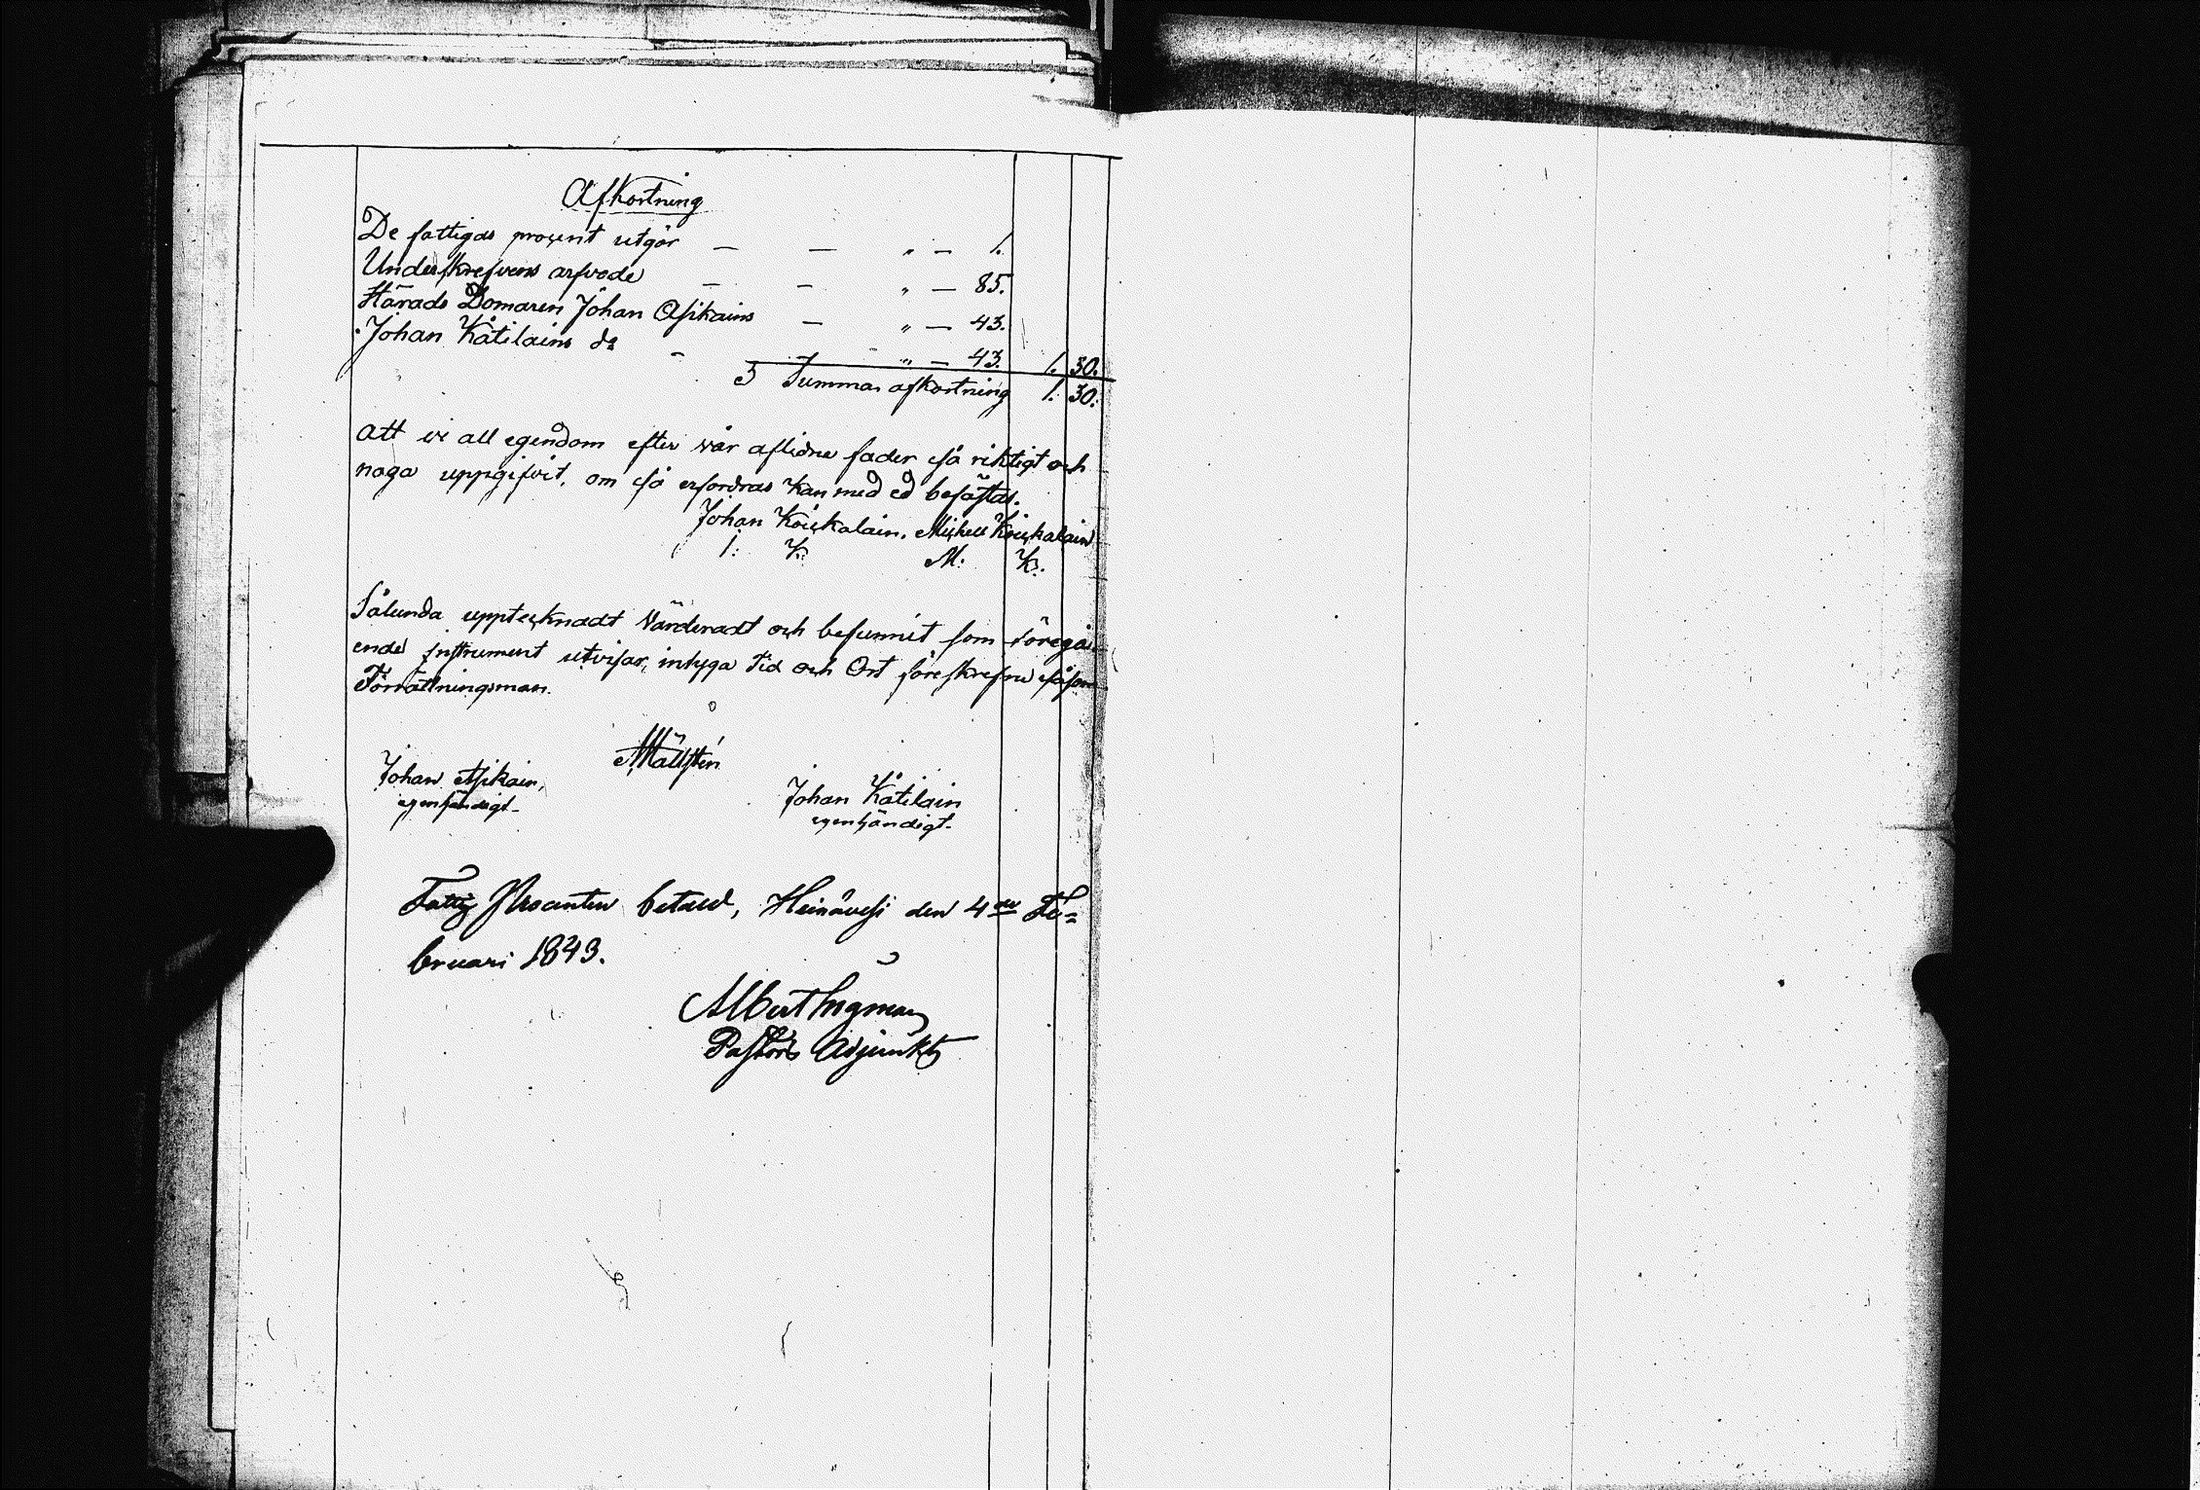 Afkortning
De fattigas procent utgör — — " — 1.
Underskrefvens arfvode — — " — 85.
Härads Domaren Johan Asikains — " — 43.
Johan Kåtilains do - - " — 43. 1. 30.
Summa afkortning 1. 30.
Att vi all egendom efter vår aflidne fader så riktigt och
noga uppgifvit, om så erfordras kan med ed befästas.
Johan Koickalain. Michell Koickalain
J: K: M: K:
Sålunda upptecknadt Värderadt och befunnit som föregå-
ende Instrument utvisar, intyga Tid och Ort föreskrefne såsom
Förrättningsman.
Mällstén
Johan Asikain,
egenhändigt-
Johan Kåtilain
egenhändigt-
Fattig Procenten betald, Heinävesi den 4de Fe=
bruari 1843.
Albert Ingman
Pastors Adjunkt